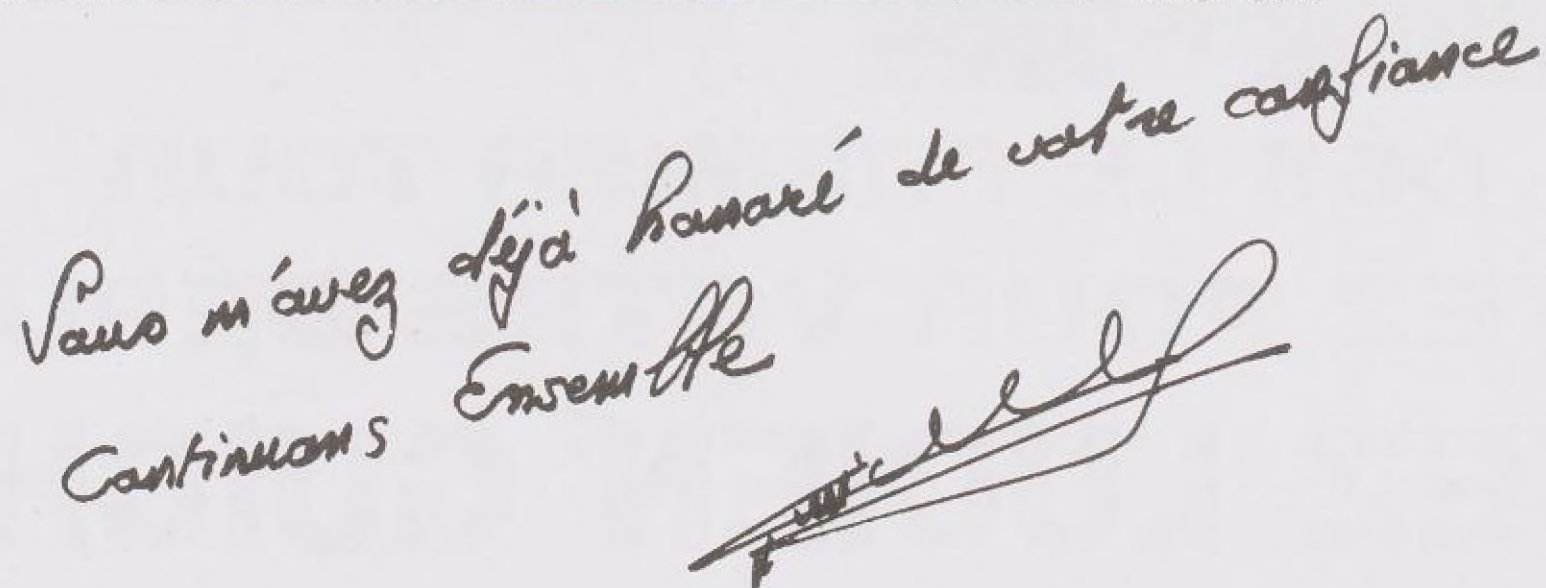 Vous m'avez déjà honoré de votre confiance
Continuons Ensemble